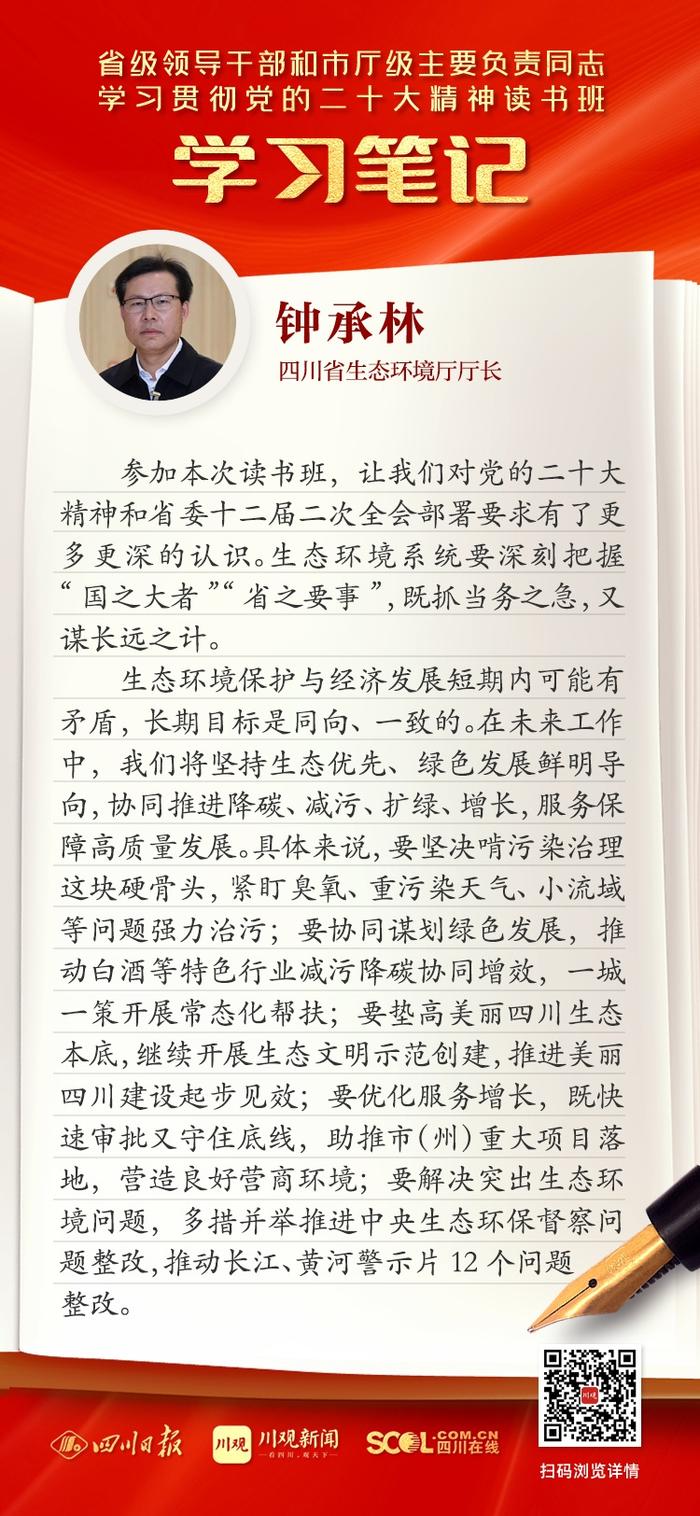 省级领导干部和市厅级主要负责同志
学习贯彻党的二十大精神读书班
学习笔记
钟承林
四川省生态环境厅厅长
参加本次读书班，让我们对党的二十大
精神和省委十二届二次全会部署要求有了更
多更深的认识。生态环境系统要深刻把握
“国之大者”“省之要事”，既抓当务之急，又
谋长远之计。
生态环境保护与经济发展短期内可能有
矛盾，长期目标是同向、一致的。在未来工作
中，我们将坚持生态优先、绿色发展鲜明导
向，协同推进降碳、减污、扩绿、增长，服务保
障高质量发展。具体来说，要坚决啃污染治理
这块硬骨头，紧盯臭氧、重污染天气、小流域
等问题强力治污；要协同谋划绿色发展，推
动白酒等特色行业减污降碳协同增效，一城
一策开展常态化帮扶；要垫高美丽四川生态
本底，继续开展生态文明示范创建，推进美丽
四川建设起步见效；要优化服务增长，既快
速审批又守住底线，助推市（州）重大项目落
地，营造良好营商环境；要解决突出生态环
境问题，多措并举推进中央生态环保督察问
题整改，推动长江、黄河警示片12个问题
整改。
四川日报
川观
川观新闻
看四川，观天下
SCOL.COM.CN
四川在线
川观
扫码浏览详情